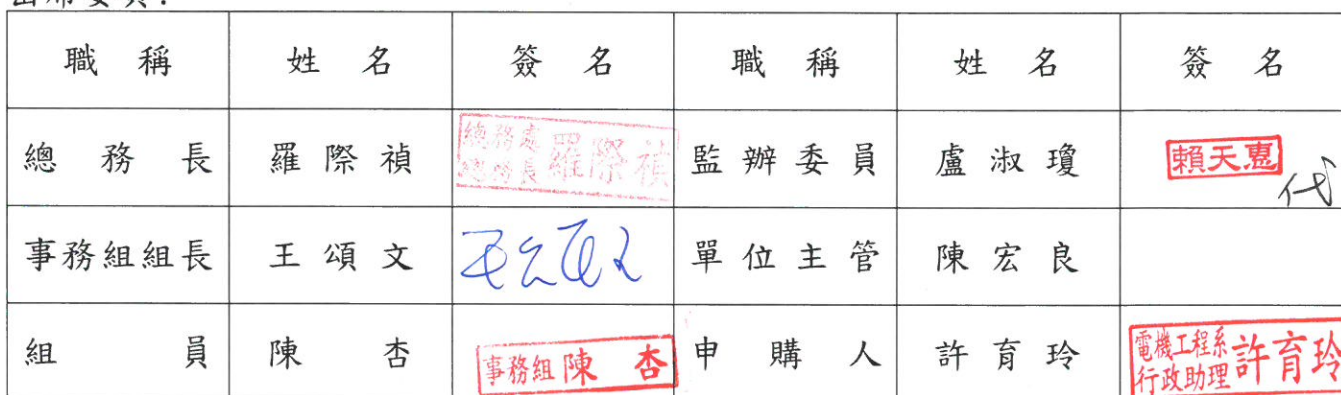 出席委員：
職稱 姓名 簽名 職稱 姓名 簽名
總務長 羅際禎 總務處總務長羅際禎 監辦委員 盧淑瓊 賴天惠 代
事務組組長 王頌文 王頌文 單位主管 陳宏良
組員 陳杏 事務組陳杏 申購人 許育玲 電機工程系行政助理許育玲